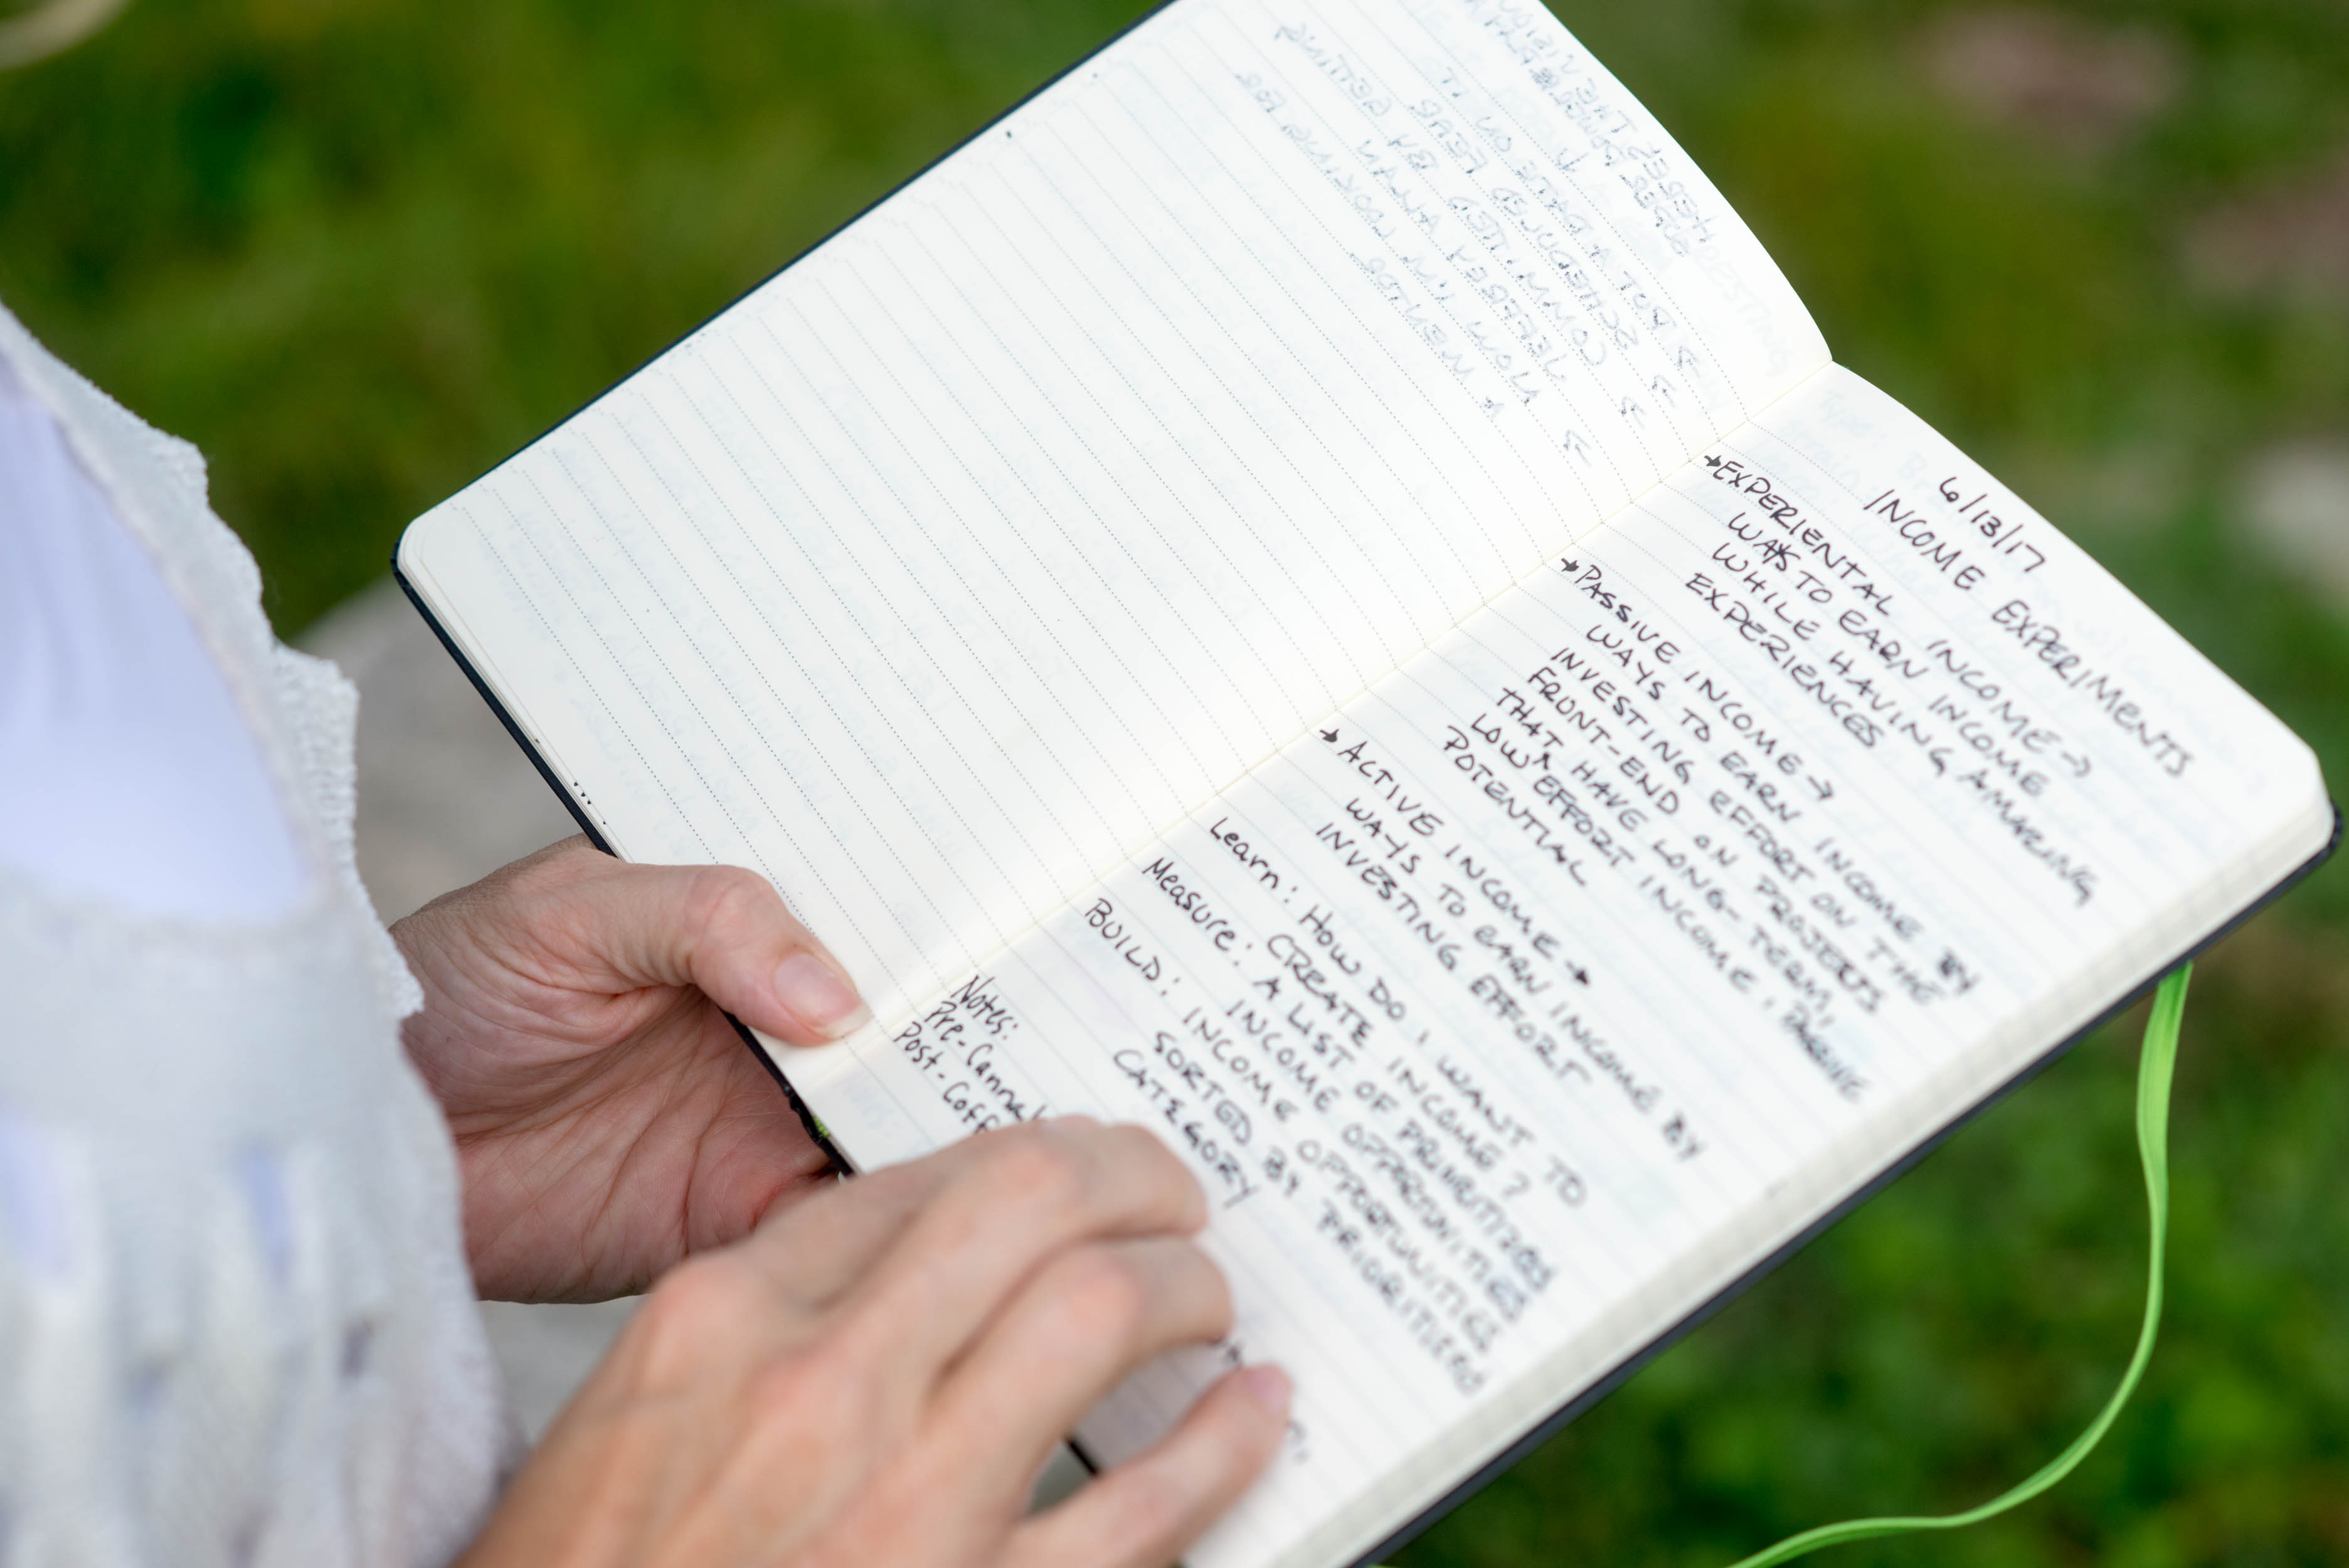 6/13/17
INCOME EXPERIMENTS
→EXPERIENTAL INCOME →
WAYS TO EARN INCOME
WHILE HAVING AMAZING
EXPERIENCES
→PASSIVE INCOME →
WAYS TO EARN INCOME BY
INVESTING EFFORT ON THE
FRONT-END ON PROJECTS
THAT HAVE LONG-TERM,
LOW EFFORT INCOME
POTENTIAL
→ACTIVE INCOME →
WAYS TO EARN INCOME BY
INVESTING EFFORT
Learn: HOW DO I WANT TO
CREATE INCOME?
Measure: A LIST OF PRIORITIZED
INCOME OPPORTUNITIES
BUILD: INCOME OPPORTUNITIES
SORTED BY PRIORITIZED
CATEGORY
Notes:
Pre-Cannab
Post-Coff